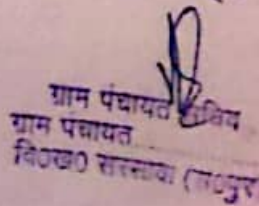 ग्राम पंचायत सचिव
ग्राम पंचायत
वि०ख० सरसावा (स०पुर